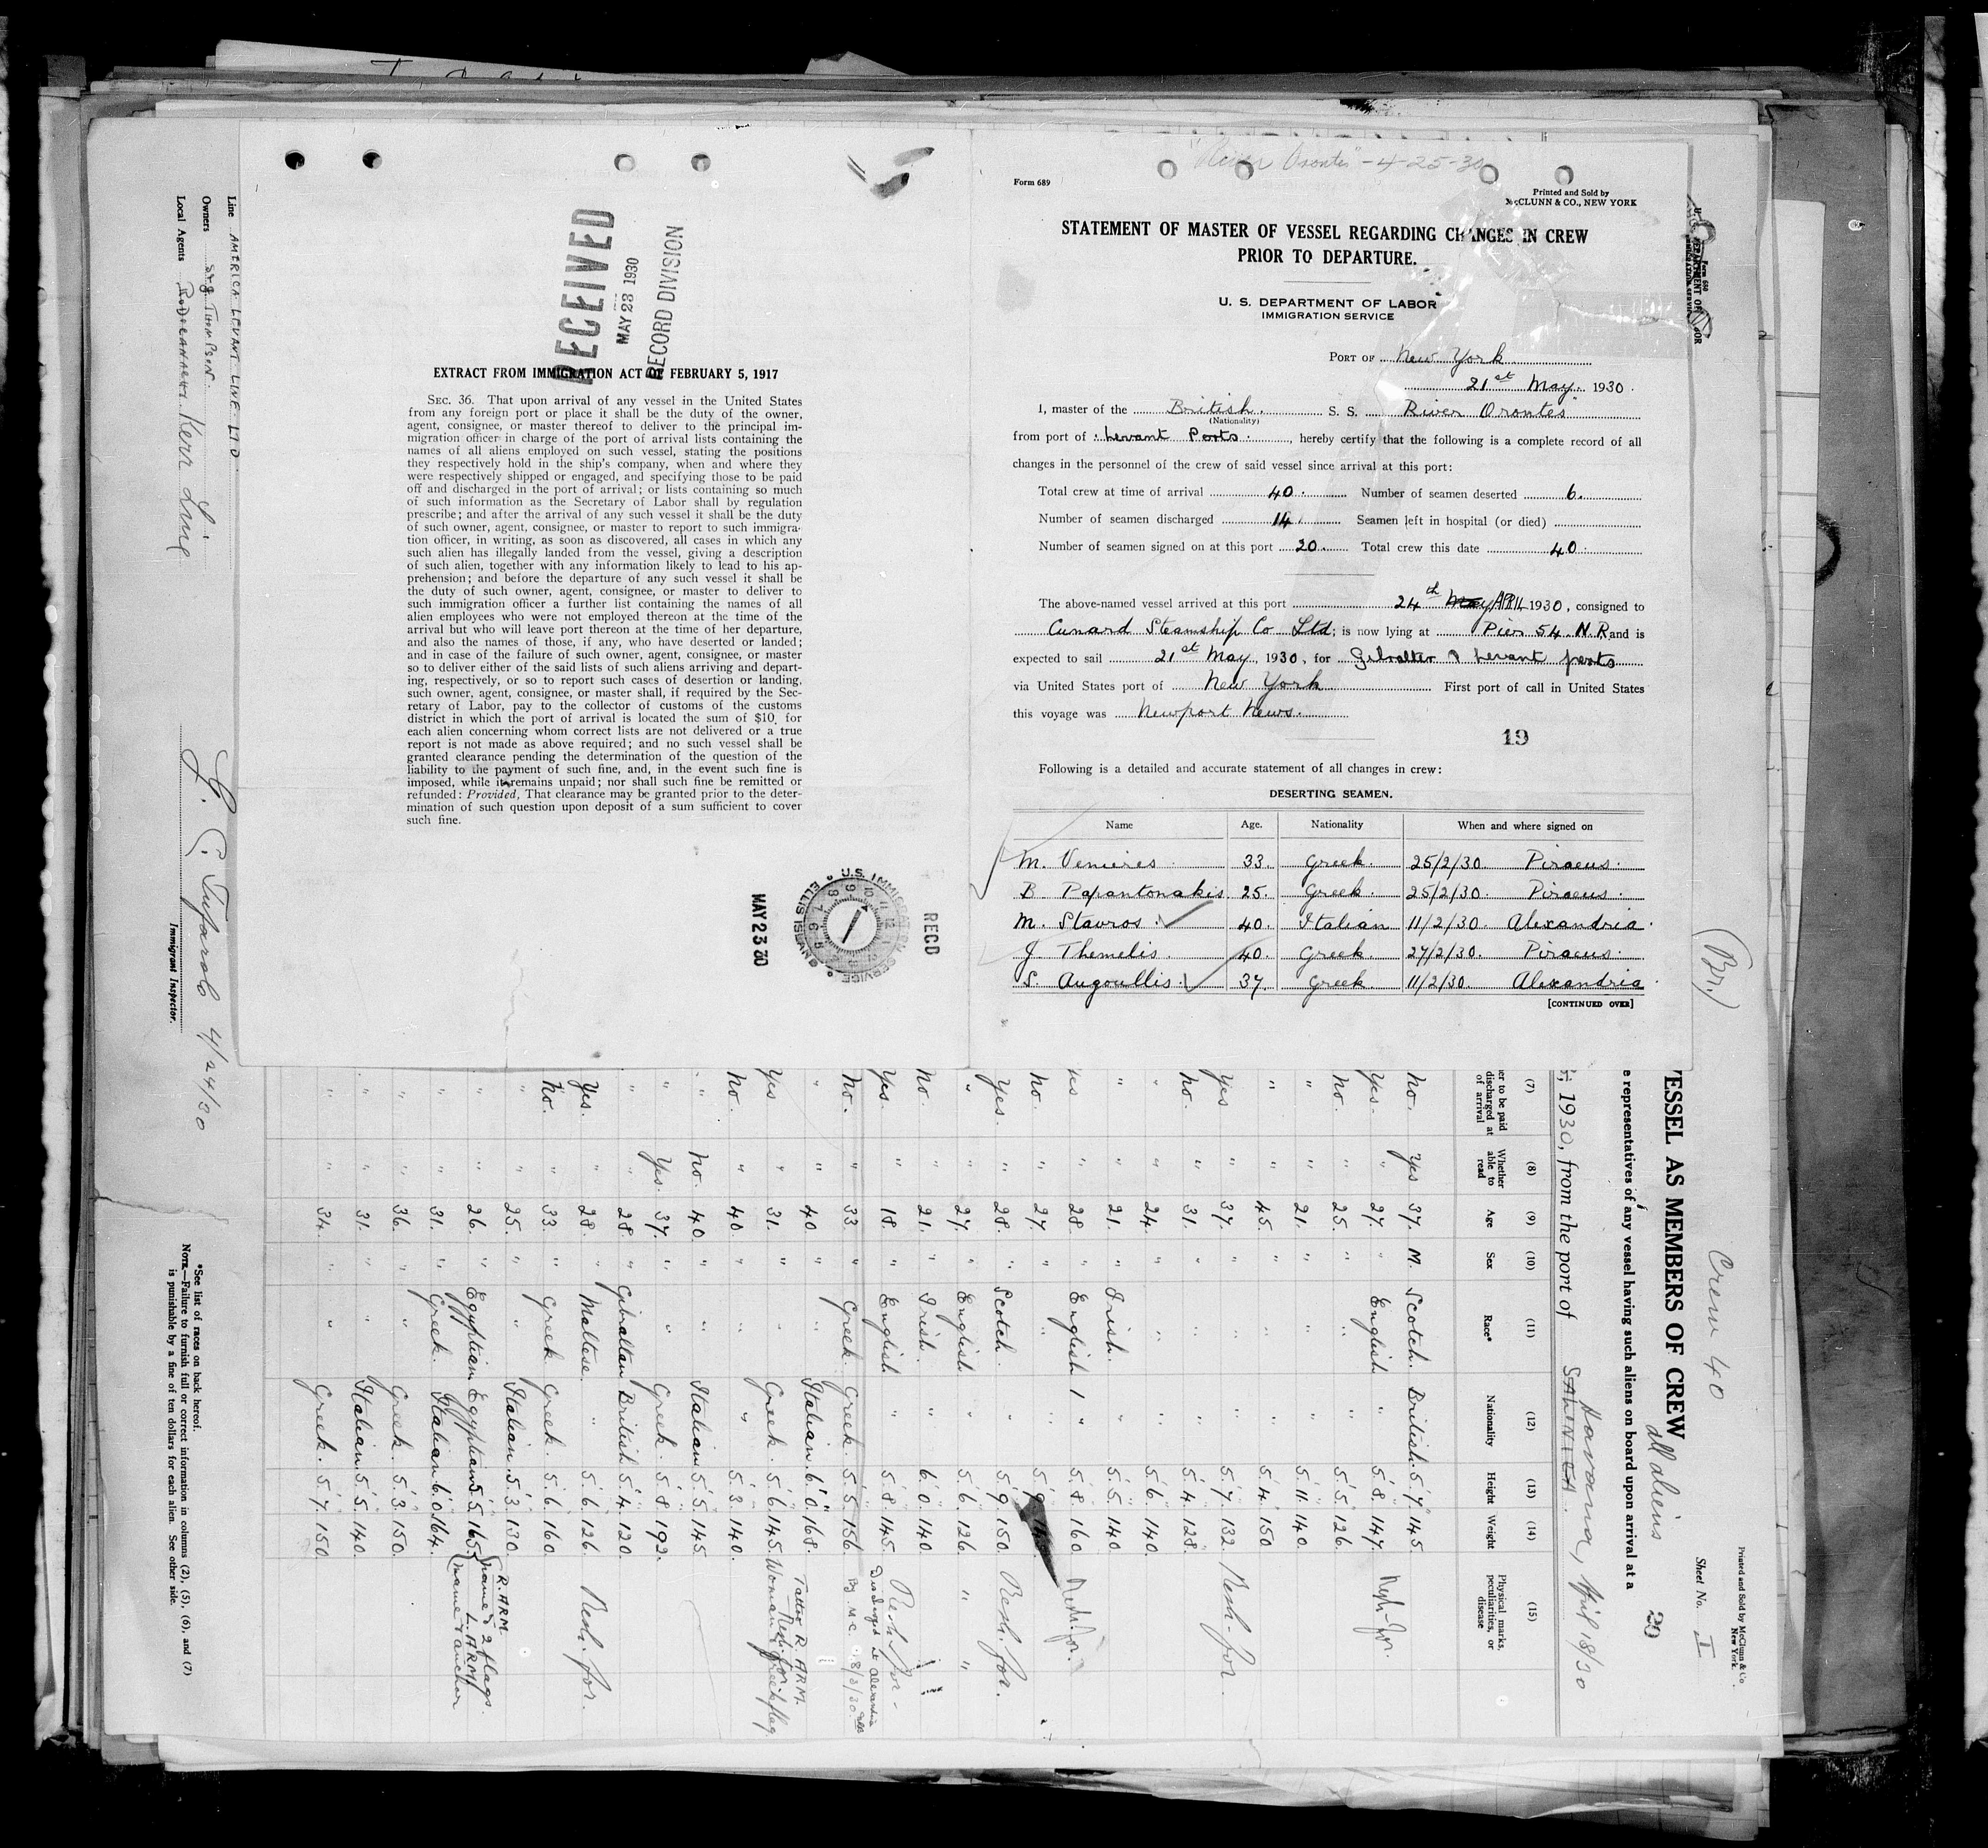 "River Orontes" - 4-25-30
Form 689
Printed and Sold by
McCLUNN & CO., NEW YORK
STATEMENT OF MASTER OF VESSEL REGARDING CHANGES IN CREW
PRIOR TO DEPARTURE.
U. S. DEPARTMENT OF LABOR
IMMIGRATION SERVICE
PORT OF New York
21st May. 1930.
I, master of the British. S. S. River Orontes
(Nationality)
from port of Levant Ports., hereby certify that the following is a complete record of all
changes in the personnel of the crew of said vessel since arrival at this port:
Total crew at time of arrival 40. Number of seamen deserted 6.
Number of seamen discharged 14 Seamen left in hospital (or died)
Number of seamen signed on at this port 20. Total crew this date 40.
The above-named vessel arrived at this port 24th May APRIL 1930, consigned to
Cunard Steamship Co Ltd; is now lying at Pier 54 N.R and is
expected to sail 21st May, 1930, for Gibralter & Levant ports
via United States port of New York First port of call in United States
this voyage was Newport News.
19
Following is a detailed and accurate statement of all changes in crew:
DESERTING SEAMEN.
Name Age. Nationality When and where signed on
M. Venieres 33. Greek. 25/2/30. Piraeus.
B Papantonakis. 25. Greek. 25/2/30. Piraeus.
M. Stavros. 40. Italian 11/2/30. Alexandria.
J. Themelis. 40. Greek. 27/2/30. Piraeus.
S. Augoullis. 37. Greek. 11/2/30. Alexandria
[CONTINUED OVER]
RECEIVED
MAY 28 1930
RECORD DIVISION
EXTRACT FROM IMMIGRATION ACT OF FEBRUARY 5, 1917
SEC. 36. That upon arrival of any vessel in the United States
from any foreign port or place it shall be the duty of the owner,
agent, consignee, or master thereof to deliver to the principal im-
migration officer in charge of the port of arrival lists containing the
names of all aliens employed on such vessel, stating the positions
they respectively hold in the ship's company, when and where they
were respectively shipped or engaged, and specifying those to be paid
off and discharged in the port of arrival; or lists containing so much
of such information as the Secretary of Labor shall by regulation
prescribe; and after the arrival of any such vessel it shall be the duty
of such owner, agent, consignee, or master to report to such immigra-
tion officer, in writing, as soon as discovered, all cases in which any
such alien has illegally landed from the vessel, giving a description
of such alien, together with any information likely to lead to his ap-
prehension; and before the departure of any such vessel it shall be
the duty of such owner, agent, consignee, or master to deliver to
such immigration officer a further list containing the names of all
alien employees who were not employed thereon at the time of the
arrival but who will leave port thereon at the time of her departure,
and also the names of those, if any, who have deserted or landed;
and in case of the failure of such owner, agent, consignee, or master
so to deliver either of the said lists of such aliens arriving and depart-
ing, respectively, or so to report such cases of desertion or landing,
such owner, agent, consignee, or master shall, if required by the Sec-
retary of Labor, pay to the collector of customs of the customs
district in which the port of arrival is located the sum of $10. for
each alien concerning whom correct lists are not delivered or a true
report is not made as above required; and no such vessel shall be
granted clearance pending the determination of the question of the
liability to the payment of such fine, and, in the event such fine is
imposed, while it remains unpaid; nor shall such fine be remitted or
refunded: Provided, That clearance may be granted prior to the deter-
mination of such question upon deposit of a sum sufficient to cover
such fine.
MAY 23 30
U.S. IMMIGRATION SERVICE ELLIS ISLAND
RECD
(Br.)
Crew 40
Printed and Sold by McClunn & Co
New York.
Sheet No. I
ESSEL AS MEMBERS OF CREW all aliens
20
e representatives of any vessel having such aliens on board upon arrival at a
1930, from the port of SALONICA. Havana, April 18/30
(7) (8) (9) (10) (11) (12) (13) (14) (15)
er to be paid discharged at of arrival Whether able to read Age Sex Race* Nationality Height Weight Physical marks, peculiarities, or disease
No. Yes 37. M. Scotch. British. 5'.7" 145.
Yes. " 27. " English " 5'.8" 147.
No. " 25. " " " 5'.5" 126.
" " 21. " " " 5'.11" 140.
" " 45. " " " 5'.4" 150
Yes " 37. " " " 5'.7" 132.
No. " 31. " " " 5'.4" 128.
" " 24. " " " 5'.6" 140.
" " 21. " Irish. " 5'.5" 140
Yes " 28 " English " 5'.8" 160
No. " 27. " " " 5'.9"
Yes. " 28. " Scotch. " 5'.9" 150.
" " 27. " English " 5'.6" 126 "
No. " 21. " Irish. " 6'.0" 140
Yes. " 18. " English " 5'.8" 145.
Discharged at Alexandria
No. " 33. " Greek. Greek. 5'.5" 156. By M.C. 18/3/30
" " 40. " " Italian. 6'.0" 168. Tattoo R. ARM.
Yes " 31. " " Greek. 5'.6" 145. Woman & Greek flag
No. " 40. " " " 5'.3" 140.
" No. 40. " " Italian 5'.5" 145.
" Yes. 37. " " Greek. 5'.8" 192.
" " 28. " Gibraltan British 5'.4" 120.
Yes. " 28. " Maltese. " 5'.6" 126.
No. " 33. " Greek Greek. 5'.6" 160.
" " 25. " " Italian. 5'.3" 130.
R. ARM.
" " 26. " Egyptian Egyptian 5'.5" 165. name & 2 flags. L. ARM
name & anchor
" " 31. " Greek. Italian 6'.0" 164.
" " 36. " " Greek. 5'.3" 150.
" " 31. " " Italian. 5'.5" 140.
" " 34. " " Greek. 5'.7" 150.
Line AMERICA LEVANT LINE LTD
Owners THOMPSON.
Local Agents Kerr Line
4/24/30
Immigrant Inspector.
*See list of races on back hereof.
NOTE.—Failure to furnish full or correct information in columns (2), (5), (6), and (7)
is punishable by a fine of ten dollars for each alien. See other side.